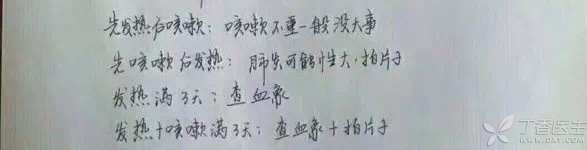 先发热后咳嗽：咳嗽不重一般没大事
先咳嗽后发热：肺炎可能性大，拍片子
发热满3天：查血象
发热+咳嗽满3天：查血象+拍片子
丁香医生
DXY.COM